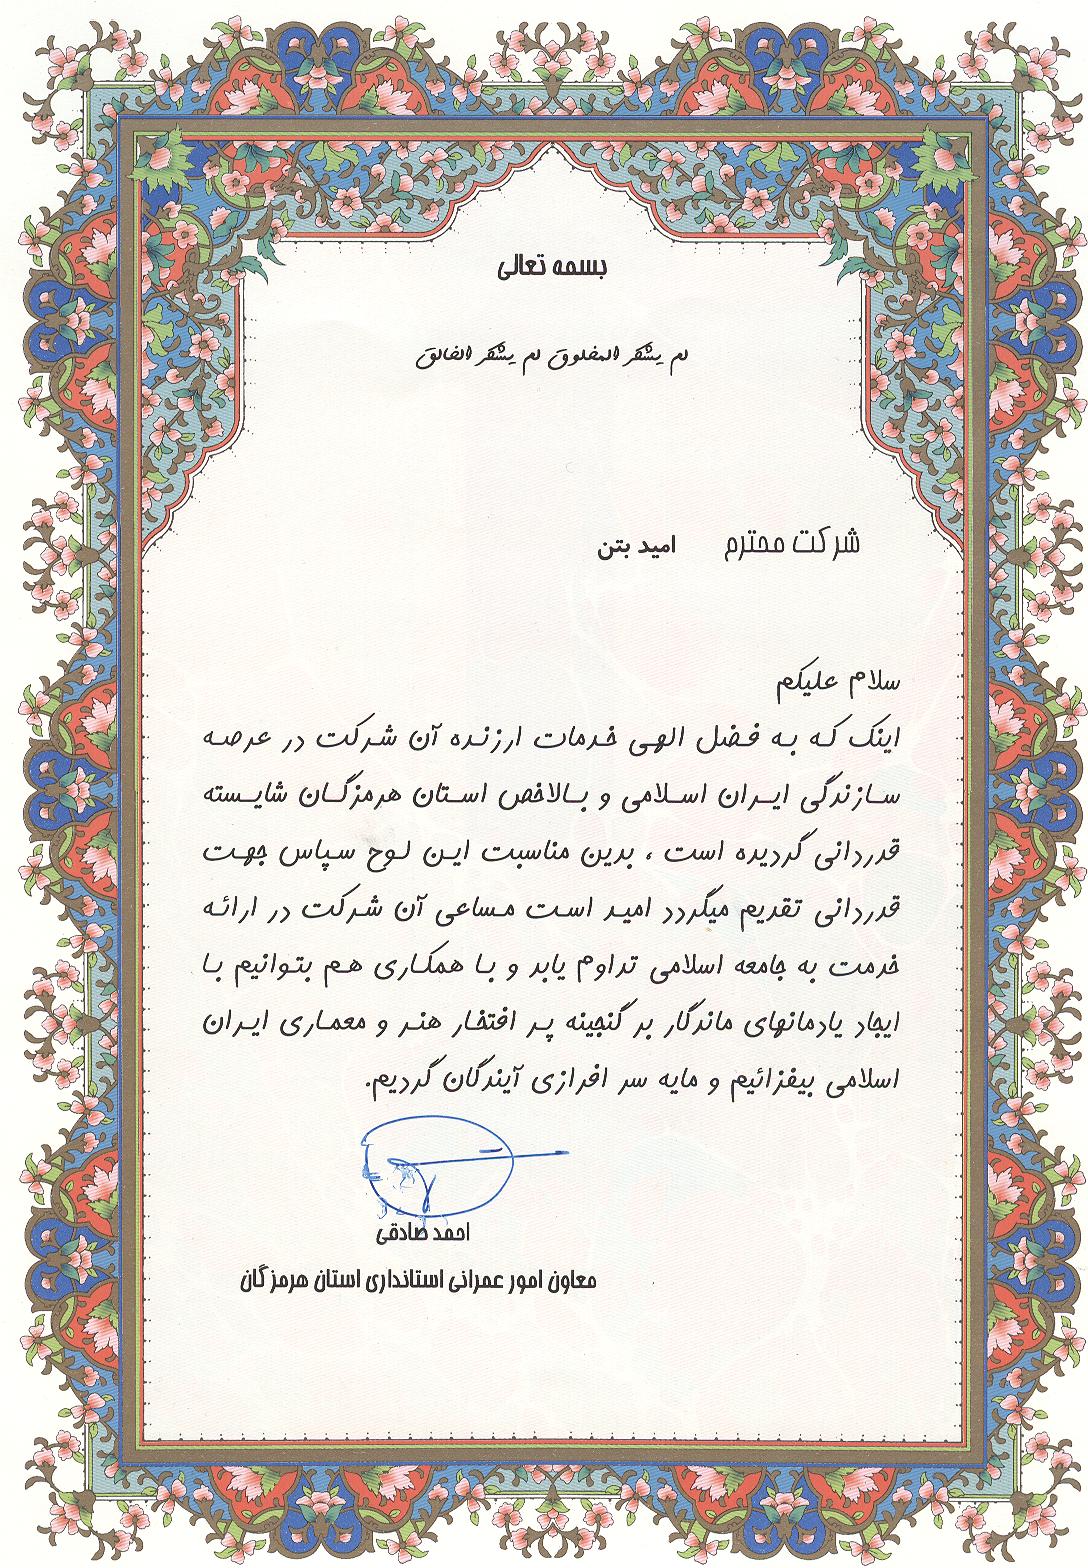 بسمه تعالی
لم یشکر المخلوق لم یشکر الخالق
شرکت محترم امید بتن
سلام علیکم
اینک که به فضل الهی خدمات ارزنده آن شرکت در عرصه
سازندگی ایران اسلامی و بالاخص استان هرمزگان شایسته
قدردانی گردیده است ، بدین مناسبت این لوح سپاس جهت
قدردانی تقدیم میگردد امید است مساعی آن شرکت در ارائه
خدمت به جامعه اسلامی تداوم یابد و با همکاری هم بتوانیم با
ایجاد یادمانهای ماندگار بر گنجینه پر افتخار هنر و معماری ایران
اسلامی بیفزائیم و مایه سر افرازی آیندگان گردیم.
احمد صادقی
معاون امور عمرانی استانداری استان هرمزگان